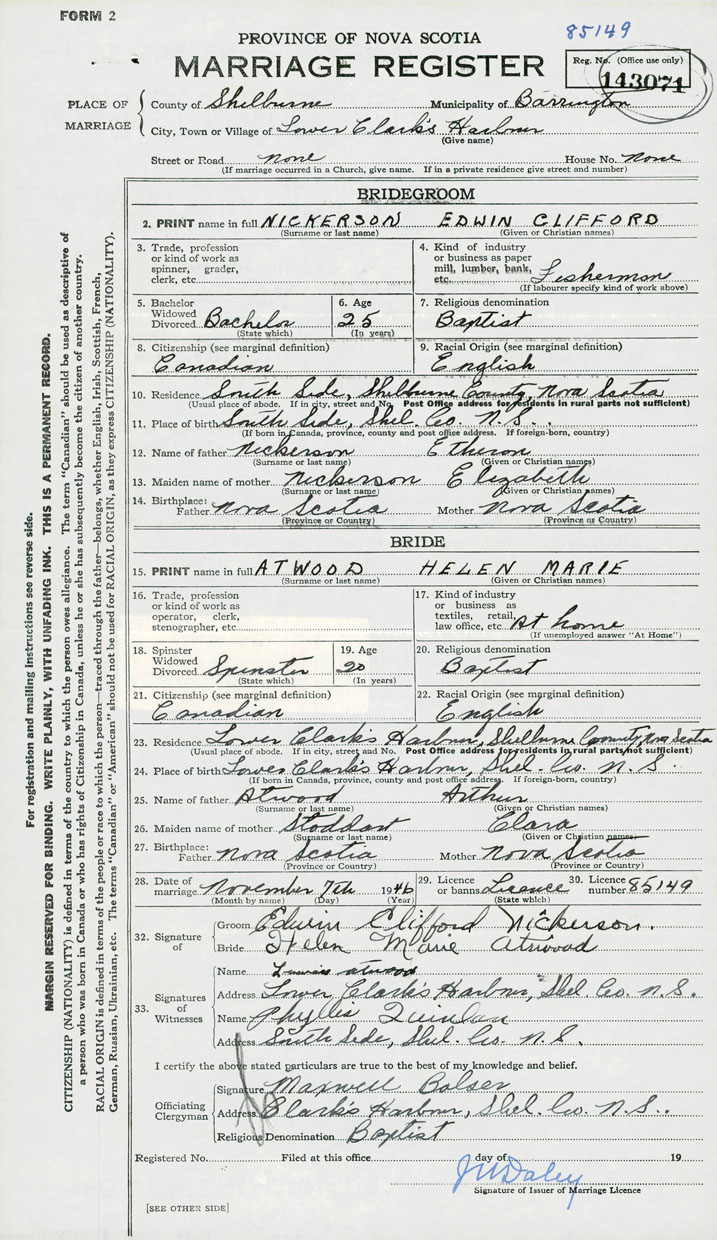 FORM 2
85149
PROVINCE OF NOVA SCOTIA
MARRIAGE REGISTER
Reg. No. (Office use only)
143071
PLACE OF MARRIAGE
County of Shelburne Municipality of Barrington
City, Town or Village of Lower Clark's Harbour
(Give name)
Street or Road none House No. none
(If marriage occurred in a Church, give name. If in a private residence give street and number)
BRIDEGROOM
2. PRINT name in full NICKERSON EDWIN CLIFFORD
(Surname or last name) (Given or Christian names)
3. Trade, profession or kind of work as spinner, grader, clerk, etc.
4. Kind of industry or business as paper mill, lumber, bank, etc. Fisherman
(If labourer specify kind of work above)
5. Bachelor Widowed Divorced Bachelor
(State which)
6. Age 25
(In years)
7. Religious denomination
Baptist
8. Citizenship (see marginal definition)
Canadian
9. Racial Origin (see marginal definition)
English
10. Residence South Side, Shelburne County, Nova Scotia
(Usual place of abode. If in city, street and No. Post Office address for residents in rural parts not sufficient)
11. Place of birth South Side, Shel. Co. N.S.
(If born in Canada, province, county and post office address. If foreign-born, country)
12. Name of father Nickerson Etheron
(Surname or last name) (Given or Christian names)
13. Maiden name of mother Nickerson Elizabeth
(Surname or last name) (Given or Christian names)
14. Birthplace: Father Nova Scotia Mother Nova Scotia
(Province or Country) (Province or Country)
BRIDE
15. PRINT name in full ATWOOD HELEN MARIE
(Surname or last name) (Given or Christian names)
16. Trade, profession or kind of work as operator, clerk, stenographer, etc.
17. Kind of industry or business as textiles, retail, law office, etc. At home
(If unemployed answer "At Home")
18. Spinster Widowed Divorced Spinster
(State which)
19. Age 20
(In years)
20. Religious denomination
Baptist
21. Citizenship (see marginal definition)
Canadian
22. Racial Origin (see marginal definition)
English
23. Residence Lower Clark's Harbour, Shelburne County, Nova Scotia
(Usual place of abode. If in city, street and No. Post Office address for residents in rural parts not sufficient)
24. Place of birth Lower Clark's Harbour, Shel. Co. N.S.
(If born in Canada, province, county and post office address. If foreign-born, country)
25. Name of father Atwood Arthur
(Surname or last name) (Given or Christian names)
26. Maiden name of mother Stoddart Clara
(Surname or last name) (Given or Christian names)
27. Birthplace: Father Nova Scotia Mother Nova Scotia
(Province or Country) (Province or Country)
28. Date of marriage November 7th 1946
(Month by name) (Day) (Year)
29. Licence or banns Licence
(State which)
30. Licence number 85149
32. Signature of
Groom Edwin Clifford Nickerson.
Bride Helen Marie Atwood
33. Signatures of Witnesses
Name Atwood
Address Lower Clark's Harbour, Shel. Co. N.S.
Name Phyllis Quinlan
Address South Side, Shel. Co. N.S.
I certify the above stated particulars are true to the best of my knowledge and belief.
Officiating Clergyman
Signature Maxwell Bolser
Address Clark's Harbour, Shel. Co. N.S.
Religious Denomination Baptist
Registered No. Filed at this office day of 19
Signature of Issuer of Marriage Licence
[SEE OTHER SIDE]
For registration and mailing instructions see reverse side.
MARGIN RESERVED FOR BINDING. WRITE PLAINLY, WITH UNFADING INK. THIS IS A PERMANENT RECORD.
CITIZENSHIP (NATIONALITY) is defined in terms of the country to which the person owes allegiance. The term "Canadian" should be used as descriptive of
a person who was born in Canada or who has rights of Citizenship in Canada, unless he or she has subsequently become the citizen of another country.
RACIAL ORIGIN is defined in terms of the people or race to which the person—traced through the father—belongs, whether English, Irish, Scottish, French,
German, Russian, Ukrainian, etc. The terms "Canadian" or "American" should not be used for RACIAL ORIGIN, as they express CITIZENSHIP (NATIONALITY).